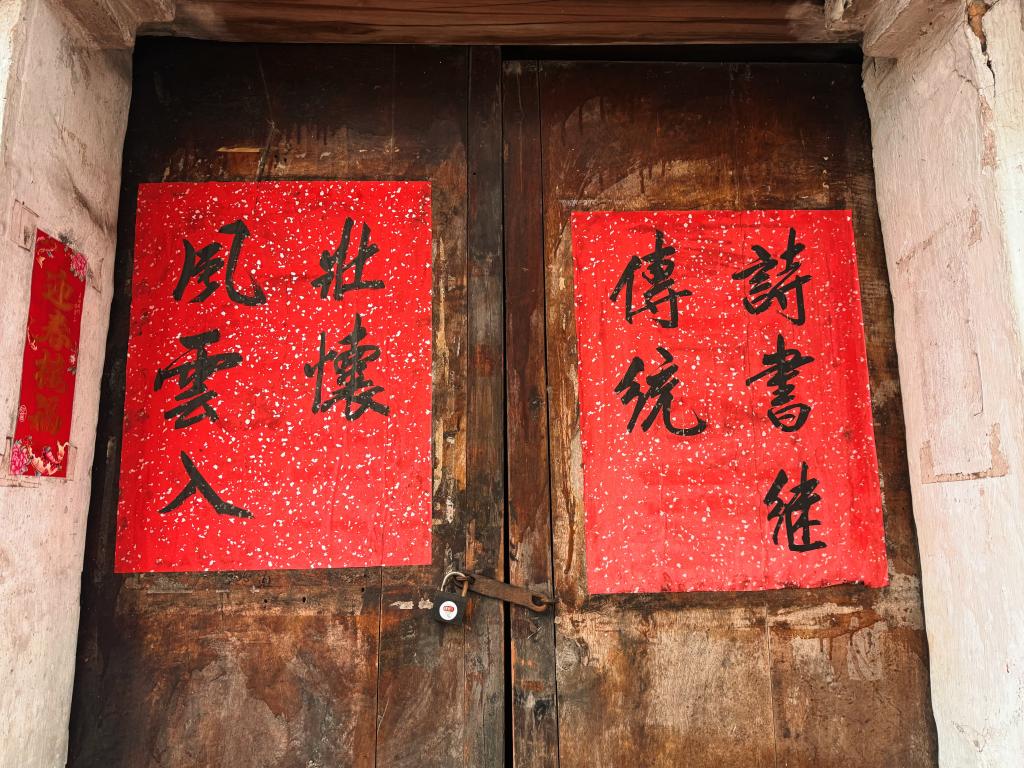 詩書継
傳統
風雲入
壯懷
迎春接福